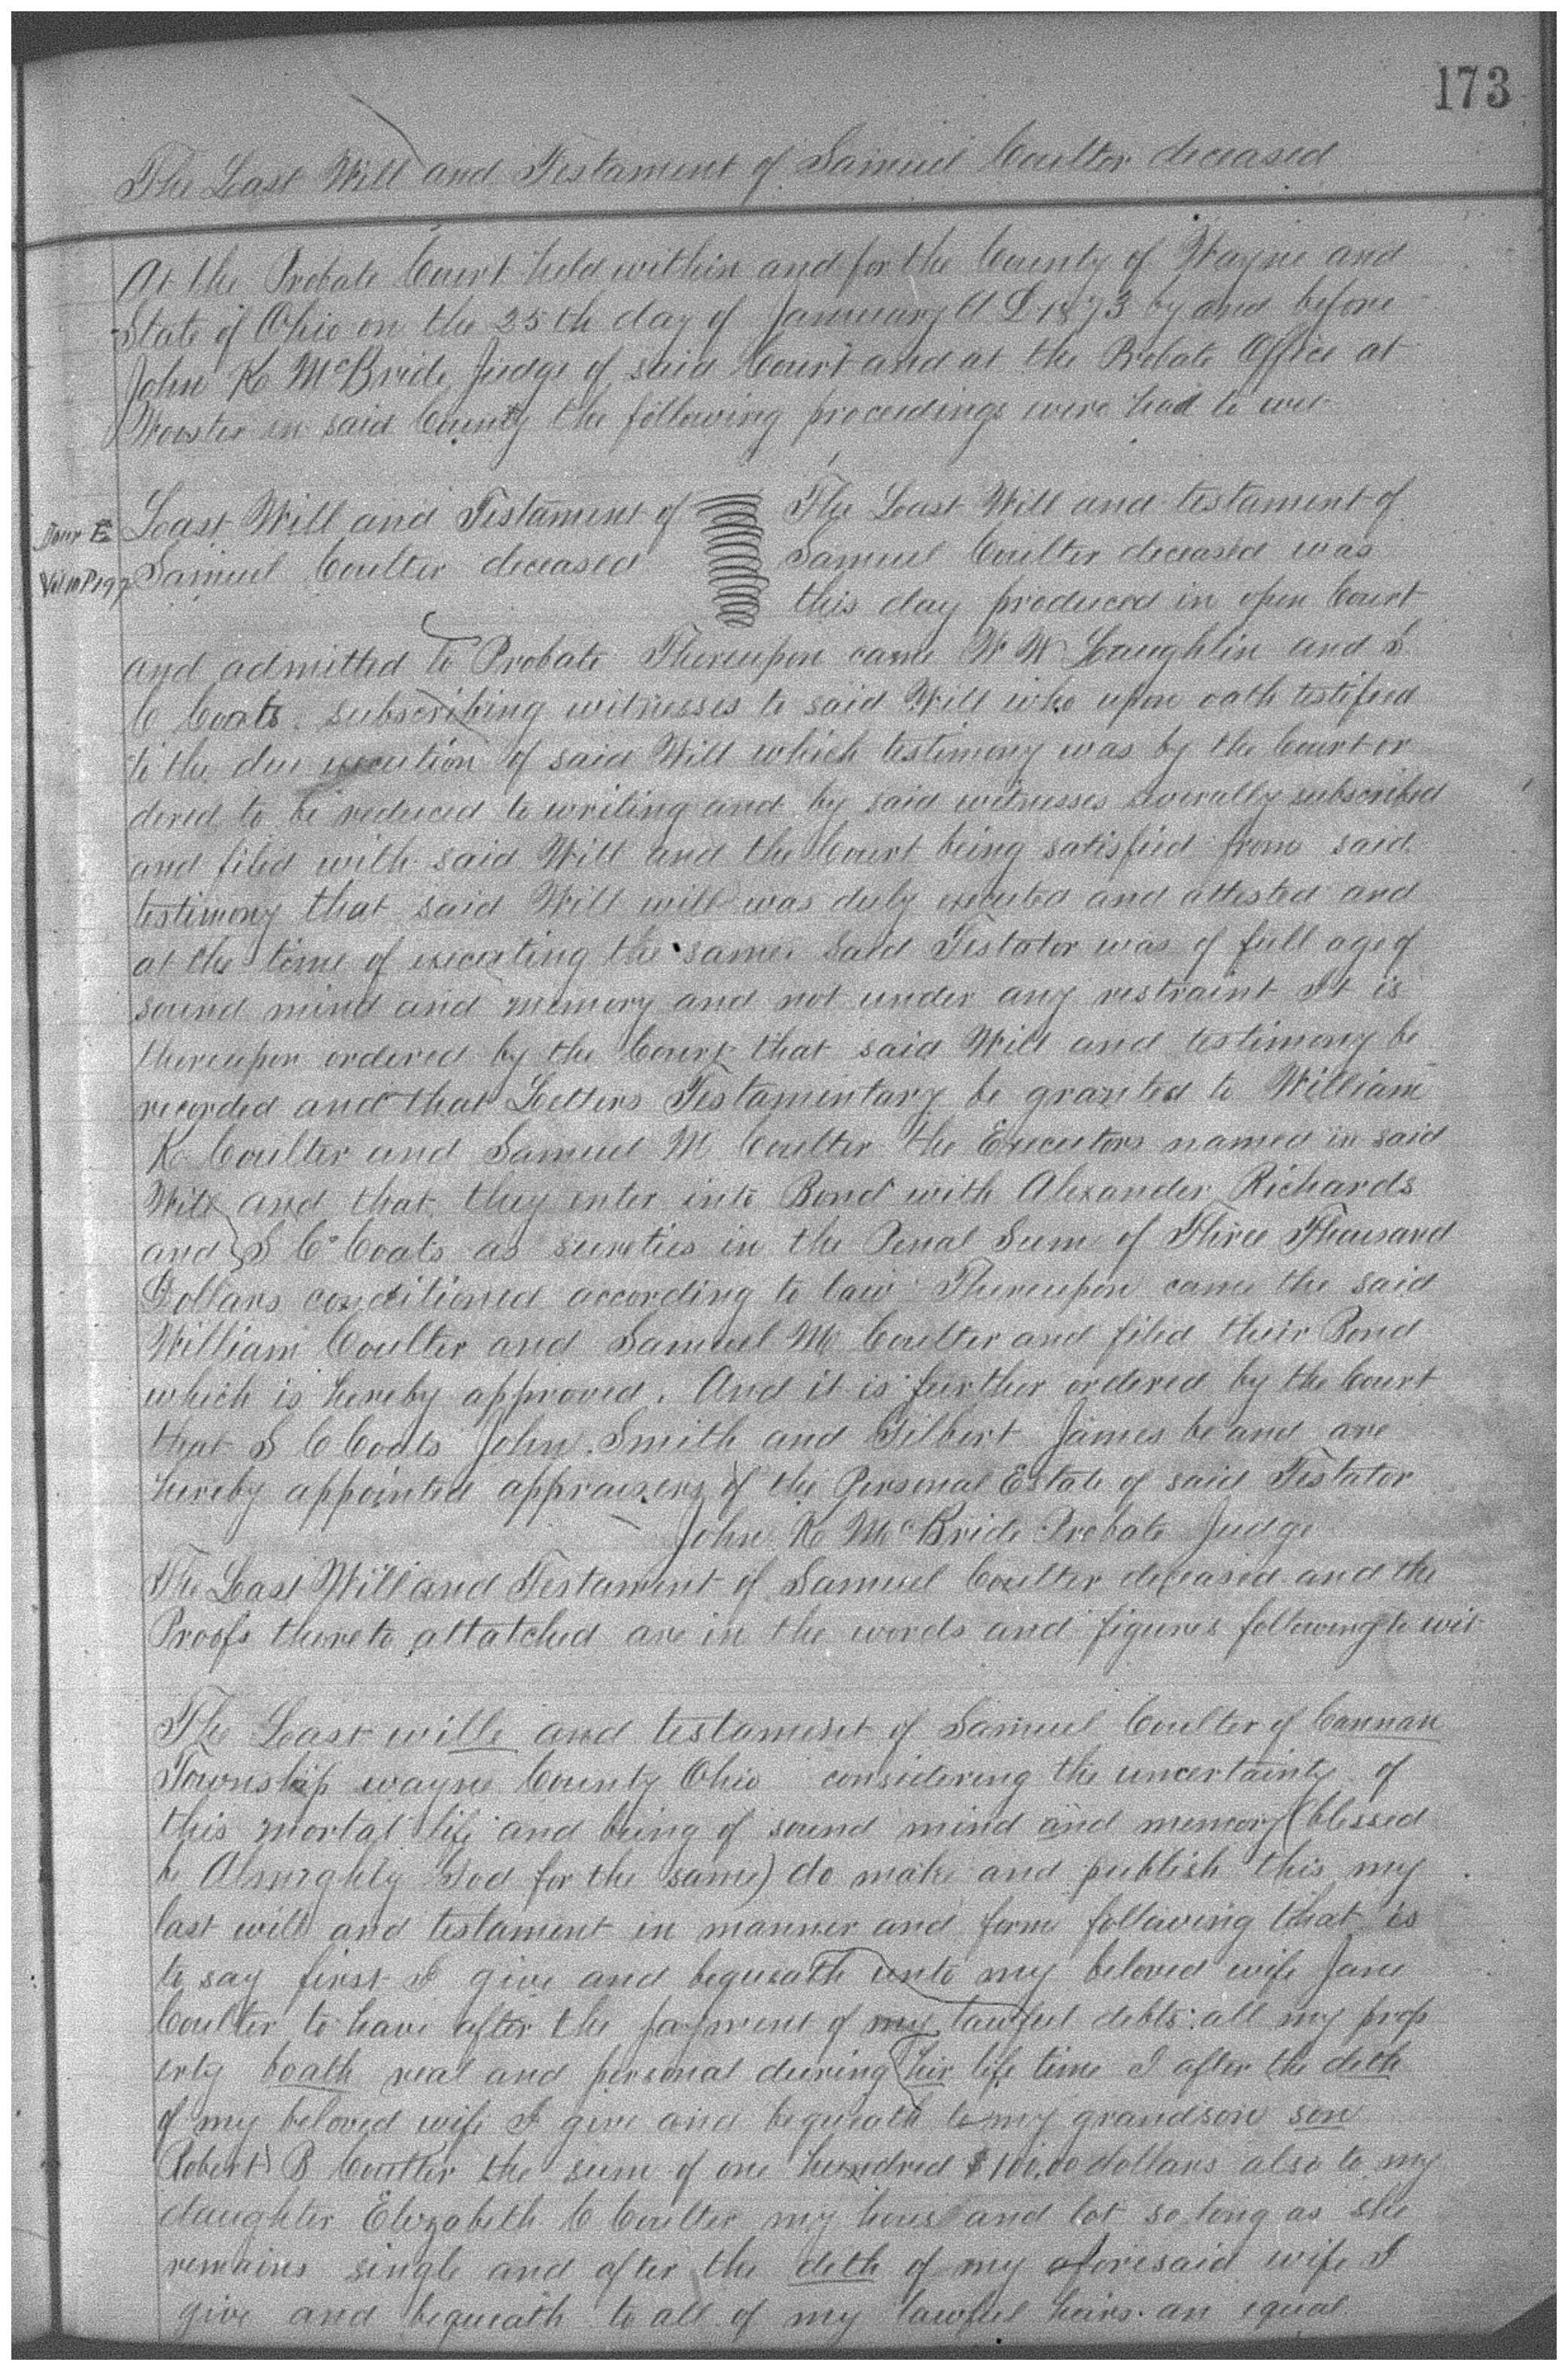 173
The Last Will and Testament of Samuel Coulter deceased
At the Probate Court held within and for the County of Wayne and
State of Ohio on the 25th day of January A D 1873 by and before
John K McBride Judge of said Court and at the Probate Office at
Wooster in said County the following proceedings were had to wit
Last Will and Testament of
Samuel Coulter deceased
The Last Will and testament of
Samuel Coulter deceased was
this day produced in open Court
and admitted to Probate Thereupon came W W Laughlin and S
C Coats subscribing witnesses to said Will who upon oath testified
to the due execution of said Will which testimony was by the Court or
dered to be reduced to writing and by said witnesses severally subscribed
and filed with said Will and the Court being satisfied from said
testimony that said Will will was duly executed and attested and
at the time of executing the same said Testator was of full age of
sound mind and memory and not under any restraint It is
thereupon ordered by the Court that said Will and testimony be
recorded and that Letters Testamentary be granted to William
K Coulter and Samuel M Coulter the Executors named in said
Will and that they enter into Bond with Alexander Richards
and S C Coats as sureties in the Penal Sum of Three Thousand
Dollars conditioned according to law Thereupon came the said
William Coulter and Samuel M Coulter and filed their Bond
which is hereby approved. And it is further ordered by the Court
that S C Coats John Smith and Gilbert James be and are
hereby appointed appraisers of the Personal Estate of said Testator
John K McBride Probate Judge
The Last Will and Testament of Samuel Coulter deceased and the
Proofs thereto attatched are in the words and figures following to wit
The Last wille and testament of Samuel Coulter of Cannan
Township wayne County Ohio considering the uncertainty of
this mortal life and being of sound mind and memory (blessed
be Almighty God for the same) do make and publish this my
last will and testament in manner and form following that is
to say first I give and bequeath unto my beloved wife Jane
Coulter to have after the payment of my lawful debts all my prop
erty boath real and personal during hir life time I after the deth
of my beloved wife I give and bequeath to my grandson son
Robert B Coulter the sum of one hundred $100.00 dollars also to my
daughter Elizabeth C Coulter my house and lot so long as she
remains single and after the deth of my aforesaid wife I
give and bequeath to all of my lawful heirs an equal